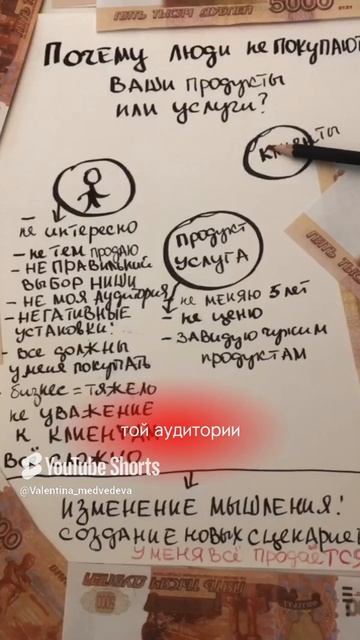 Почему люди не покупают
ваши продукты
или услуги?
клиенты
не интересно
- не тем продаю
- не правильный
выбор ниши
- не моя аудитория
- негативные
установки:
- все должны
у меня покупать
- бизнес = тяжело
не уважение
к клиентам
всё сложно
продукт
услуга
- не меняю 5 лет
- не ценю
- завидую чужим
продуктам
той аудитории
YouTube Shorts
@Valentina_medvedeva
изменение мышления!
создание новых сценариев
у меня всё продаётся
5000
пять тысяч рублей